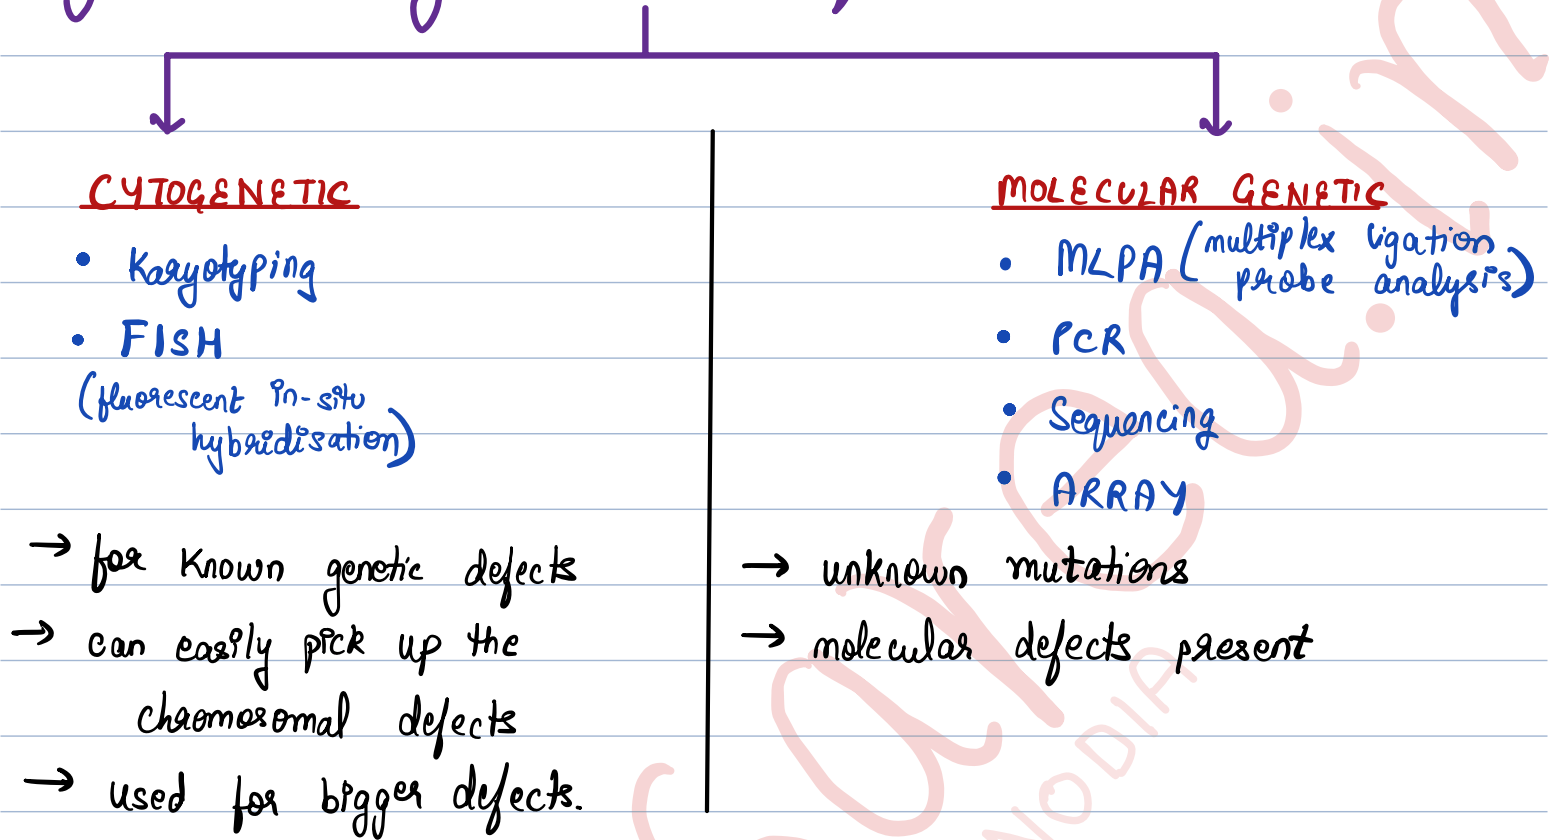 CYTOGENETIC
• Karyotyping
• FISH
(fluorescent in-situ
hybridisation)
→ for known genetic defects
→ can easily pick up the
chromosomal defects
→ used for bigger defects.
MOLECULAR GENETIC
• MLPA (multiplex ligation
probe analysis)
• PCR
• Sequencing
• ARRAY
→ unknown mutations
→ molecular defects present